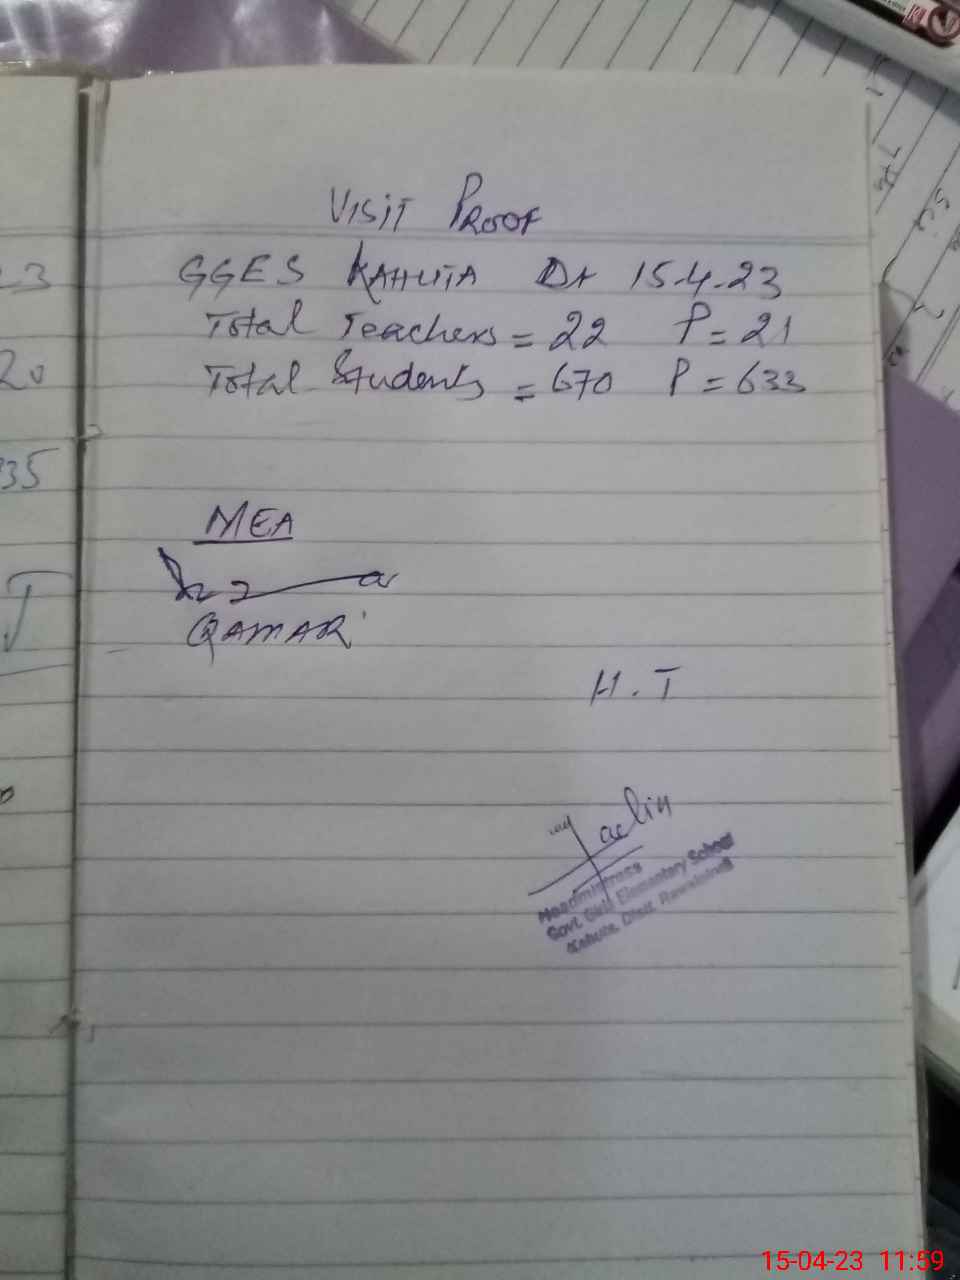 VISIT PROOF
GGES KAHUTA Dt 15.4.23
Total Teachers = 22 P = 21
Total Students = 670 P = 633
MEA
QAMAR
H.T
Headmistress
Govt. Girls Elementary School
Kahuta, Distt. Rawalpindi
23
20
35
15-04-23 11:59